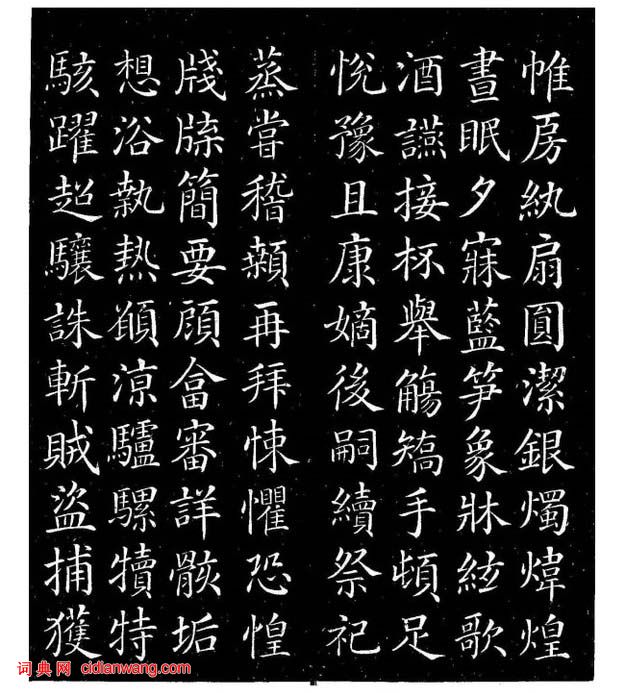 帷房紈扇圓潔銀燭煒煌
晝眠夕寐藍笋象牀絃歌
酒讌接杯舉觴矯手頓足
悅豫且康嫡後嗣續祭祀
蒸嘗稽顙再拜悚懼恐惶
牋牒簡要顧畣審詳骸垢
想浴執熱願涼驢騾犢特
駭躍超驤誅斬賊盜捕獲
词典网 cidianwang.com